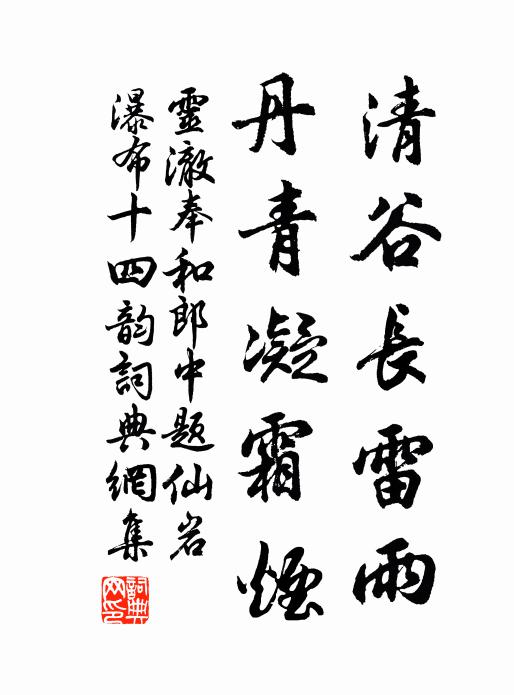 清谷長雷雨
丹青凝霜煙
靈澈奉和郎中题仙岩
瀑布十四韵詞典網集
詞典网印